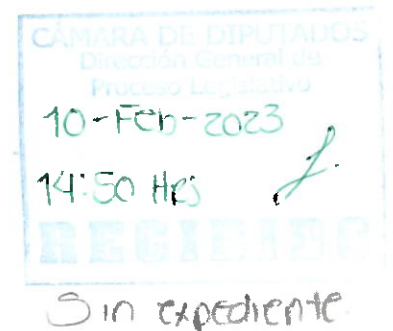 CÁMARA DE DIPUTADOS
Dirección General de
Proceso Legislativo
10-Feb-2023
14:50 Hrs
RECIBIDO
Sin expediente